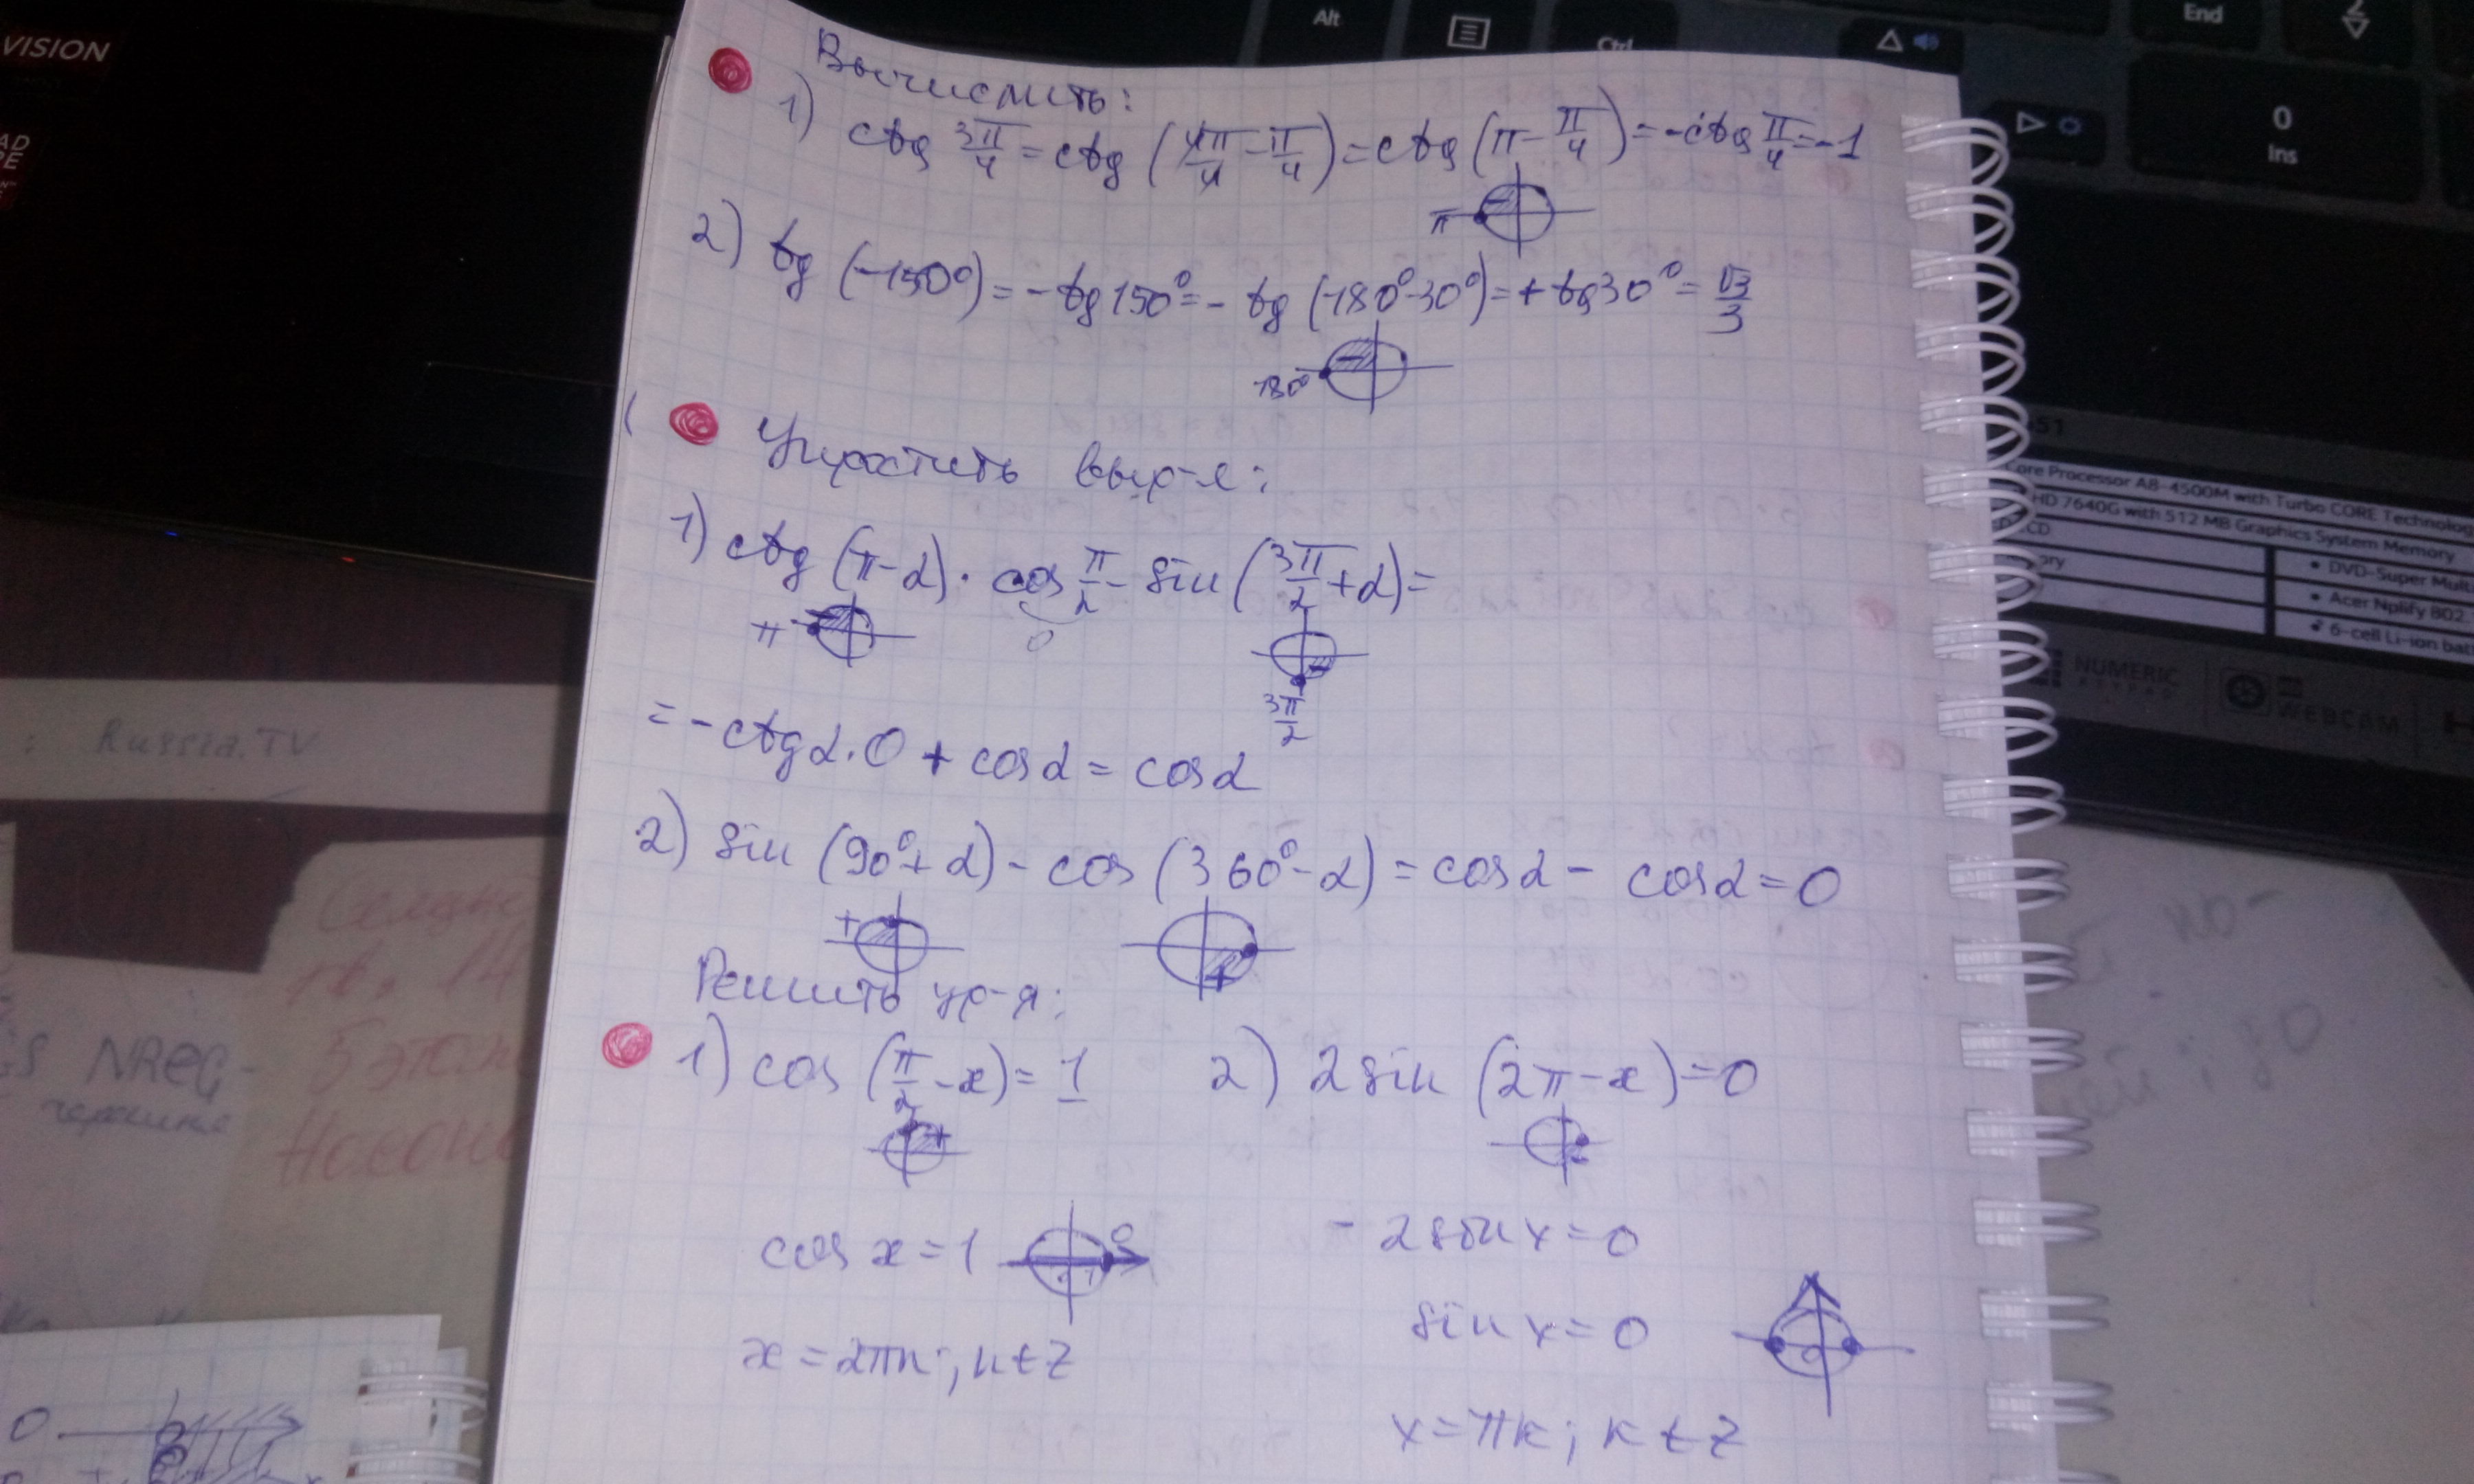 VISION
Alt
Ctrl
End
2
0
Ins
Вычислить:
1) ctg 3π/4 = ctg (4π/4 - π/4) = ctg (π - π/4) = -ctg π/4 = -1
π
-
2) tg (-150°) = -tg 150° = - tg (180° - 30°) = + tg 30° = √3/3
180°
-
Упростить выр-е:
1) ctg (π-α) · cos π/2 - sin (3π/2 + α) =
π
-
0
-
3π/2
= -ctg α · 0 + cos α = cos α
2) sin (90° + α) - cos (360° - α) = cos α - cos α = 0
+
+
Решить ур-я:
1) cos (π/2 - x) = 1
2) 2 sin (2π - x) = 0
+
-
cos x = 1
0
-2 sin x = 0
sin x = 0
0
x = 2πn; n ∈ Z
x = πk; k ∈ Z
Core Processor A8-4500M with Turbo CORE Technolog
HD 7640G with 512 MB Graphics System Memory
DVD-Super Mult
Acer Nplify 802.
6-cell Li-ion bat
NUMERIC
WEBCAM
: Russia.TV
5 этаж
0